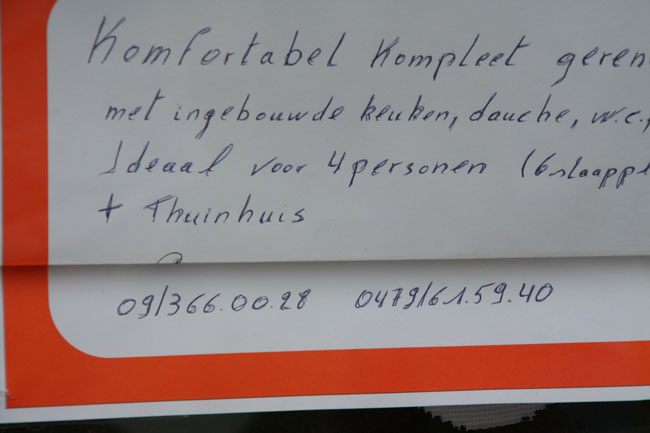 Komfortabel Kompleet geren
met ingebouwde keuken, dauche, w.c.,
Ideaal voor 4 personen (6 slaappl
+ Thuinhuis
09/366.00.28 0479/61.59.40